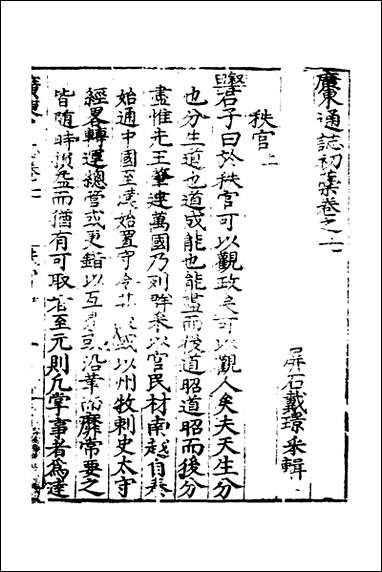 廣東通誌初藁卷之七
屏石戴璟采輯
秩官上
璟君子曰於秩官可以觀政矣可以觀人矣夫天生分
也分生道也道成能也能盡而後道昭道昭而後分
盡惟先王肇建萬國乃列群采以官民材南越自秦
始通中國至漢始置守令其後或以州牧刺史太守
經畧轉運總管或更錯以互見或沿革而靡常要之
皆隨時損益而猶有可取者至元則凡掌事者為達